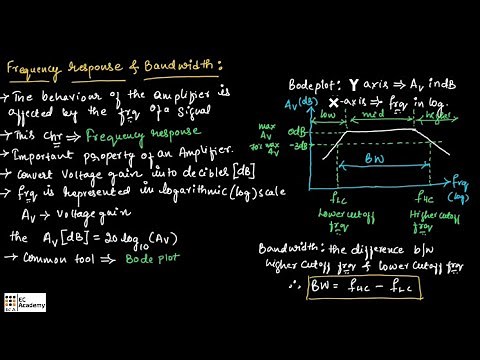 Frequency Response & Bandwidth:
→ The behaviour of the amplifier is
affected by the frq of a Signal
→ This chr ⇒ Frequency response
→ Important property of an Amplifier.
→ Convert Voltage gain into decibles [dB]
→ frq is represented in logarithmic (log) scale
Av → Voltage gain
the Av [dB] = 20 log10 (Av)
→ Common tool ⇒ Bode plot
EC
Academy
ECA
Bode plot: Y axis ⇒ Av in dB
X-axis ⇒ frq in log.
Av (dB)
low mid higher
max Av 0dB
70% of max Av -3dB
BW
frq
(log)
fLC fHC
Lower cutoff frq Higher cutoff frq
Bandwidth: the difference b/w
higher cutoff frq & lower cutoff frq
∴ BW = fHC - fLC